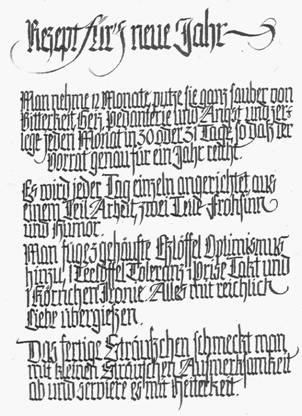 Rezept für's neue Jahr
Man nehme 12 Monate, putze sie ganz sauber von
Bitterkeit, Geiz, Pedanterie und Angst und zer-
lege jeden Monat in 30 oder 31 Tage, so daß der
Vorrat genau für ein Jahr reicht.
Es wird jeder Tag einzeln angerichtet aus
einem Teil Arbeit, zwei Teile Frohsinn
und Humor.
Man füge 3 gehäufte Eßlöffel Optimismus
hinzu, 1 Teelöffel Toleranz, 1 Prise Takt und
1 Körnchen Ironie. Alles mit reichlich
Liebe übergießen.
Das fertige Sträußchen schmeckt man
mit kleinen Sträußchen Aufmerksamkeit
ab und serviere es mit Heiterkeit.